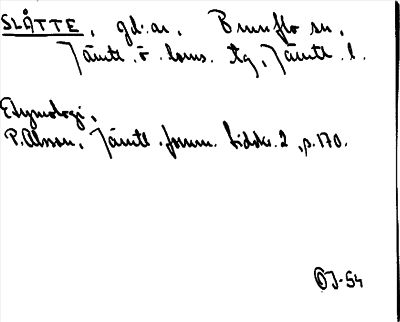 SLÅTTE, gd.ar, Brunflo sn,
Jämtl. ö. doms. tg, Jämtl. l.
Etymologi,
P. Olsson, Jämtl. fornm. tidskr. 2, p. 170.
OJ-54